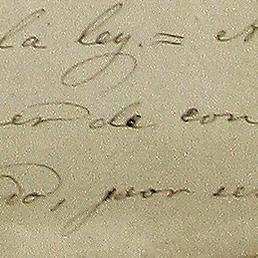 la ley. =
er de con
do, por